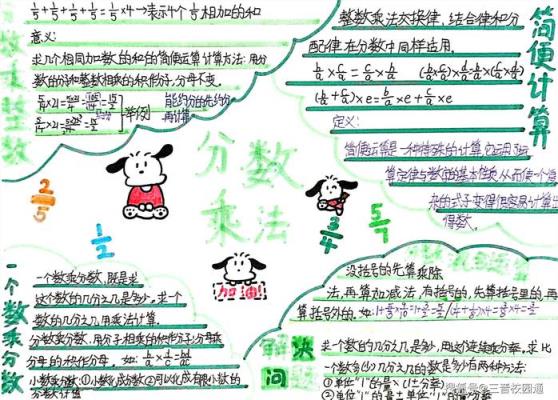 分数乘整数
1/5+1/5+1/5+1/5=1/5×4→表示4个1/5相加的和
意义:
求几个相同加数的和的简便运算 计算方法:用分
数的分子和整数相乘的积作分子,分母不变。
举例
能约分的先约分
再计算
简便计算
整数乘法交换律,结合律和分
配律在分数中同样适用。
定义:
简便运算是一种特殊的计算,它运用了运
算定律与数字的基本性质,从而使一个复
杂的式子变得很容易计算出
得数。
分数
乘法
2/5
1/2
3/4
5/7
加油!
一个数乘分数
一个数乘分数,就是求
这个数的几分之几是多少。求一个
数的几分之几用乘法计算.
分数乘分数,用分子相乘的积作分子,分母乘
分母的积作分母,如:b/a×c/d=bc/ad
小数乘分数:①小数化成分数②可以化成有限小数的
分数计值
没括号的先算乘除
法,再算加减法,有括号的,先算括号里的,再
算括号外的。如:
解决
问题
求一个数的几分之几是多少,用这个数连乘分率,求比
一个数多(少)几分之几的数是多少有两种方法:
①单位"1"的量×(1±分率)
②单位"1"的量±单位"1"的量×分率
搜狐号@三晋校园通